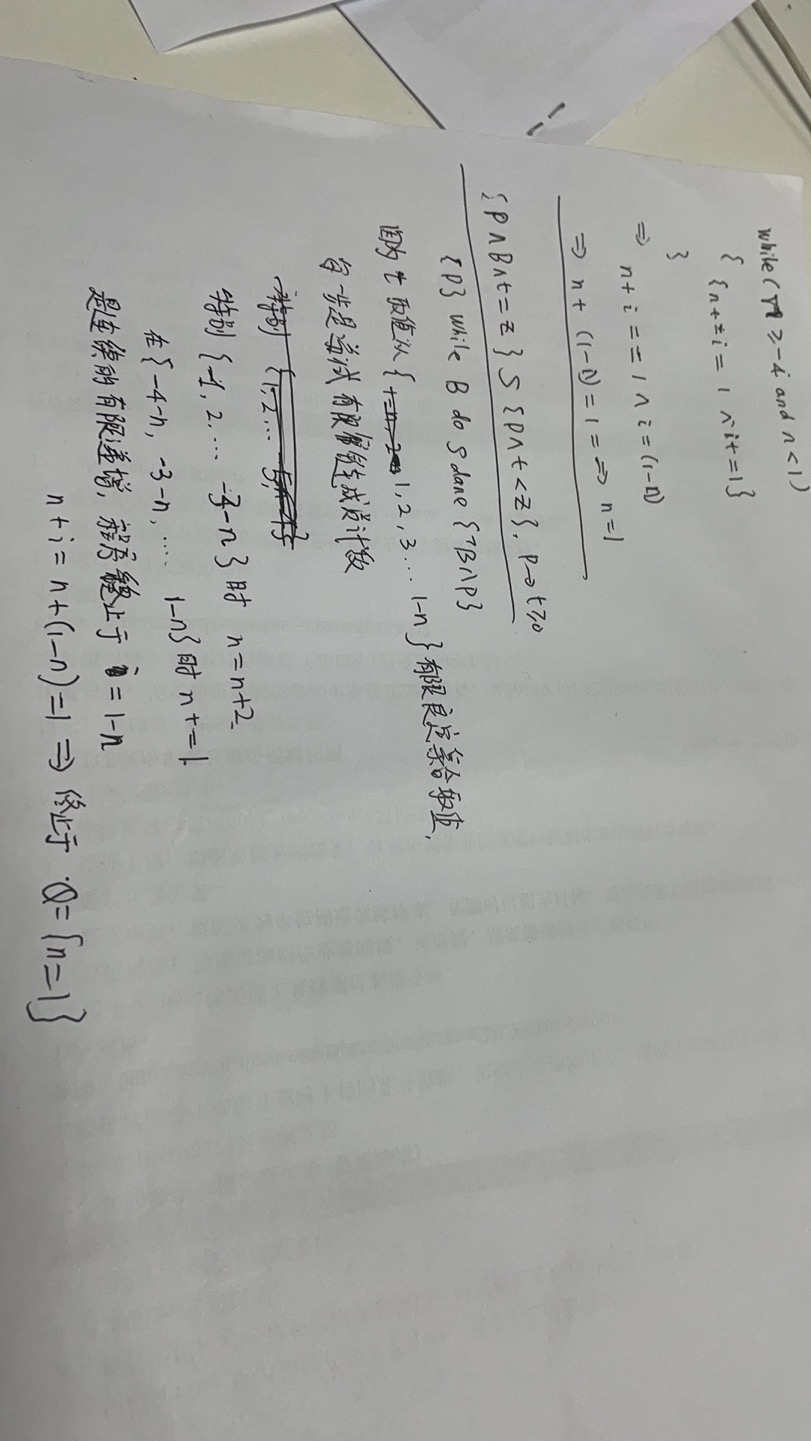 while(n ≥ -4 and n < 1)
{ {n+i = 1 ∧ i+=1}
}
⇒ n+i == 1 ∧ i = (1-n)
⇒ n + (1-n) = 1 ⇒ n = 1
{P∧B∧t=z} S {P∧t<z}, P→t≥0
{P} while B do S done {¬B∧P}
因为 t 取值从 { 1, 2, 3 … 1-n} 有限良定集合取值,
每一步是尝试有限 生成 计数
特别 {1, 2 …
特别 {-1, 2, … -3-n} 时 n = n+2.
在 {-4-n, -3-n, … 1-n} 时 n+=1
是连续的有限递增, 程序终止于 i = 1-n
n+i = n+(1-n)=1 ⇒ 终止于 Q={n=1}